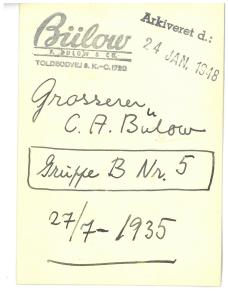 Bülow
F. BÜLOW & CO.
TOLDBODVEJ 8. K.-C. 1780
Arkiveret d.:
24 JAN. 1948
Grosserer
C. A. Bülow
Gruppe B Nr. 5
27/7-1935